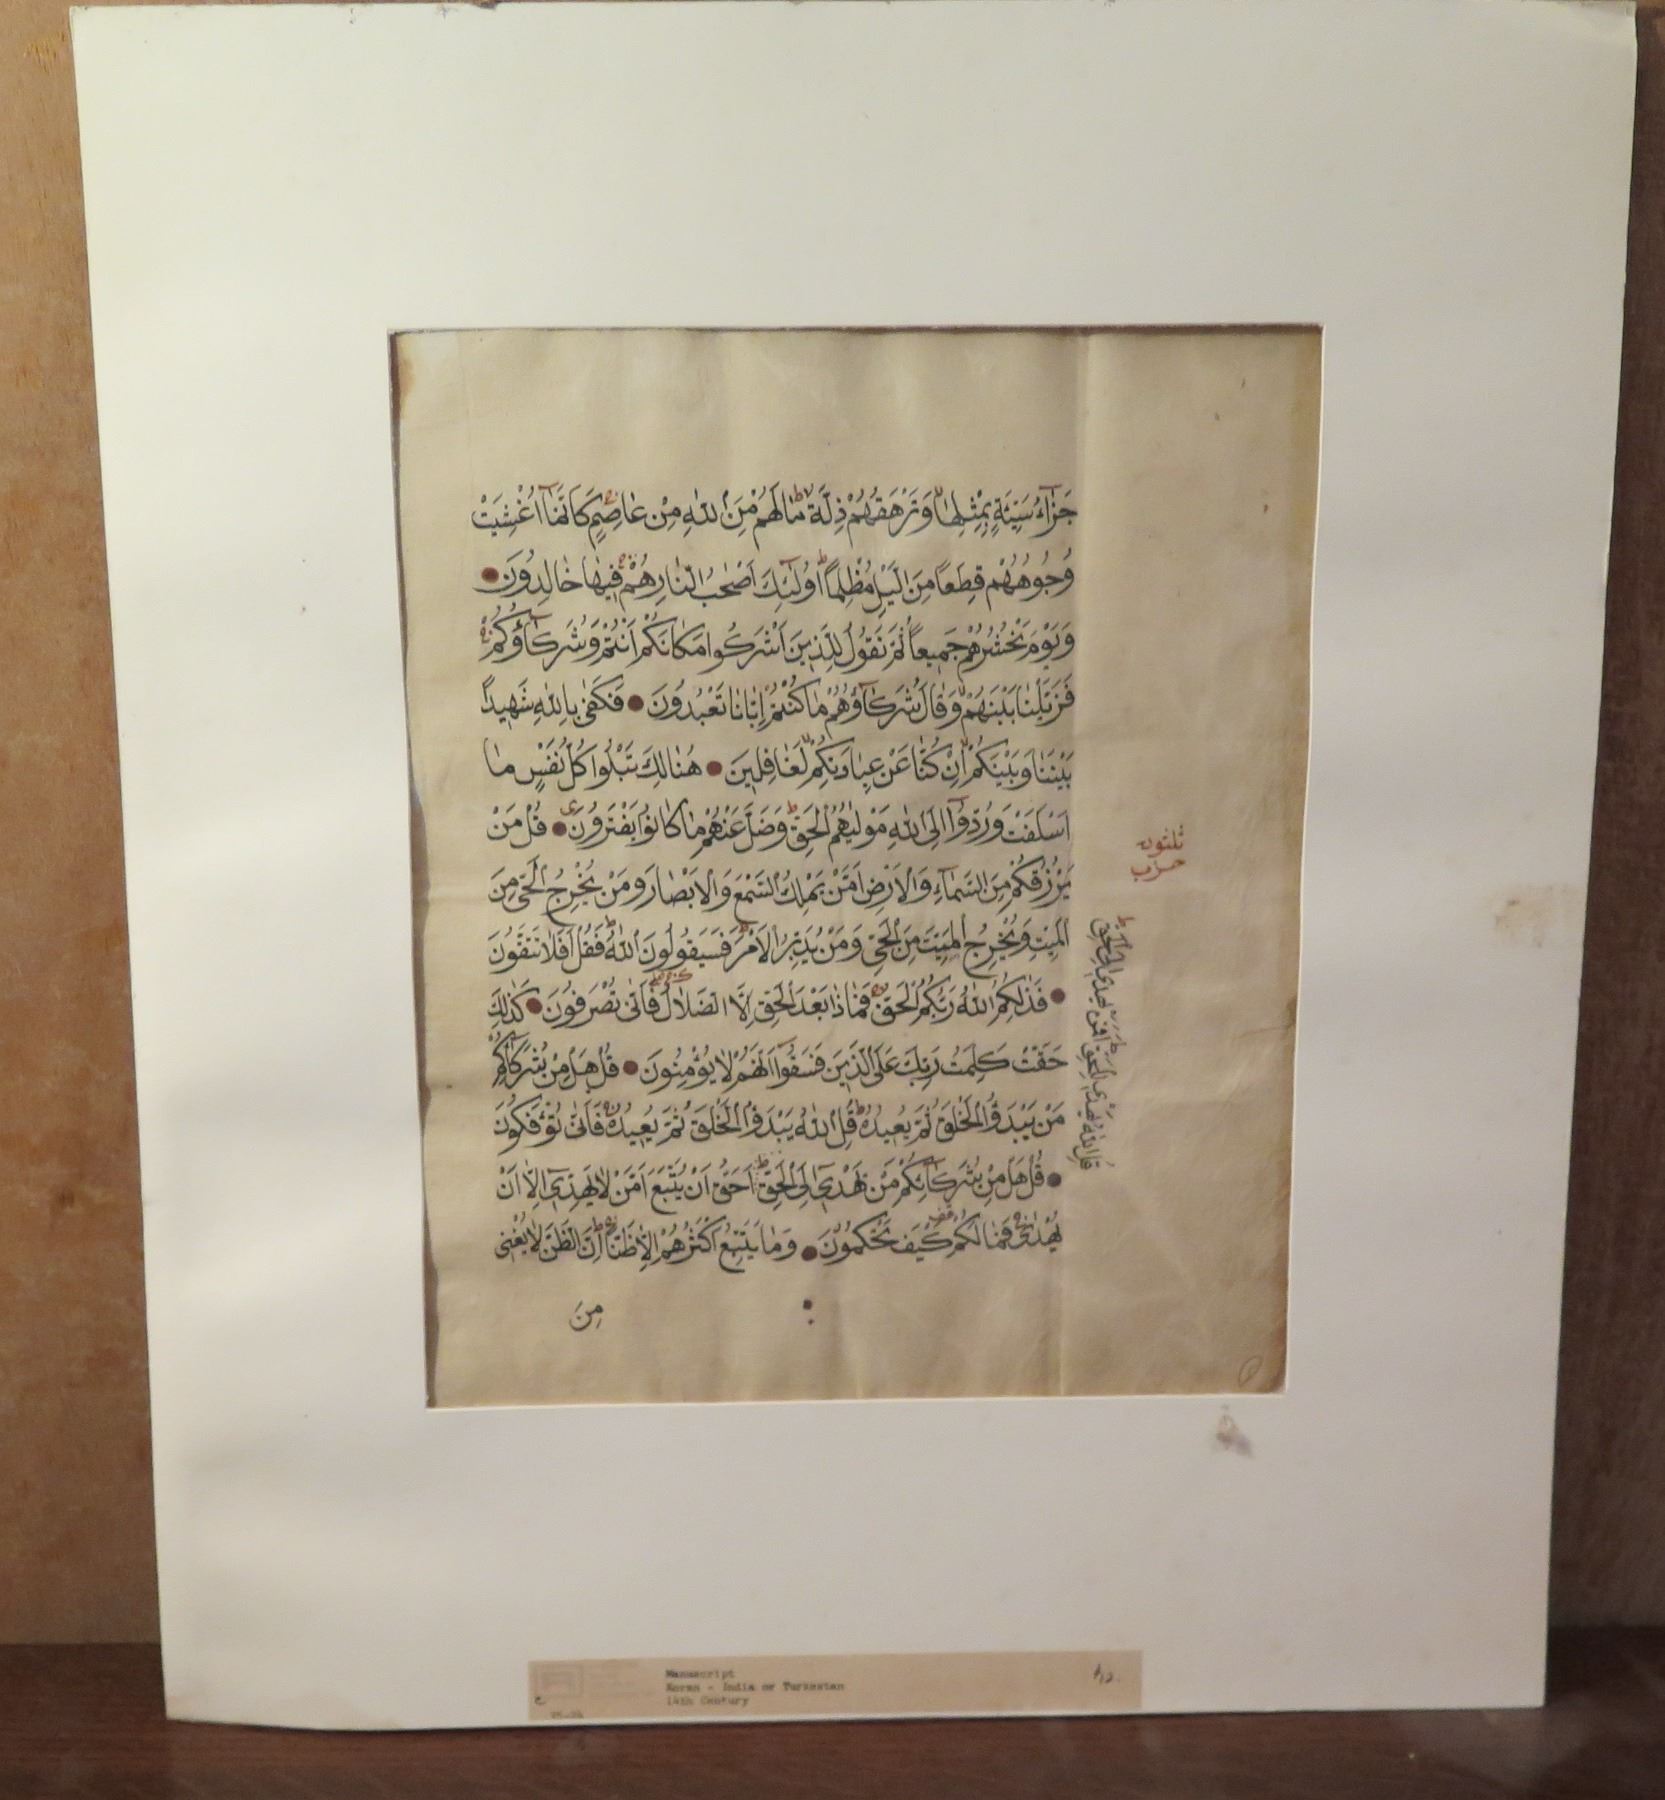 جَزَآءُ سَيِّئَةٍ بِمِثْلِهَا وَتَرْهَقُهُمْ ذِلَّةٌ مَا لَهُمْ مِنَ اللّٰهِ مِنْ عَاصِمٍ كَاَنَّمَآ اُغْشِيَتْ
وُجُوهُهُمْ قِطَعًا مِنَ الَّيْلِ مُظْلِمًا اُولٰٓئِكَ اَصْحٰبُ النَّارِ هُمْ فِيهَا خَالِدُونَ
وَيَوْمَ نَحْشُرُهُمْ جَمِيعًا ثُمَّ نَقُولُ لِلَّذِينَ اَشْرَكُوا مَكَانَكُمْ اَنْتُمْ وَشُرَكَآؤُكُمْ
فَزَيَّلْنَا بَيْنَهُمْ وَقَالَ شُرَكَآؤُهُمْ مَا كُنْتُمْ اِيَّانَا تَعْبُدُونَ فَكَفٰى بِاللّٰهِ شَهِيدًا
بَيْنَنَا وَبَيْنَكُمْ اِنْ كُنَّا عَنْ عِبَادَتِكُمْ لَغَافِلِينَ هُنَالِكَ تَبْلُوا كُلُّ نَفْسٍ مَا
اَسْلَفَتْ وَرُدُّوٓا اِلَى اللّٰهِ مَوْلٰيهُمُ الْحَقِّ وَضَلَّ عَنْهُمْ مَا كَانُوا يَفْتَرُونَ قُلْ مَنْ
يَرْزُقُكُمْ مِنَ السَّمَآءِ وَالْاَرْضِ اَمَّنْ يَمْلِكُ السَّمْعَ وَالْاَبْصَارَ وَمَنْ يُخْرِجُ الْحَىَّ مِنَ
الْمَيِّتِ وَيُخْرِجُ الْمَيِّتَ مِنَ الْحَىِّ وَمَنْ يُدَبِّرُ الْاَمْرَ فَسَيَقُولُونَ اللّٰهُ فَقُلْ اَفَلَا تَتَّقُونَ
فَذٰلِكُمُ اللّٰهُ رَبُّكُمُ الْحَقُّ فَمَاذَا بَعْدَ الْحَقِّ اِلَّا الضَّلَالُ فَاَنّٰى تُصْرَفُونَ كَذٰلِكَ
حَقَّتْ كَلِمَتُ رَبِّكَ عَلَى الَّذِينَ فَسَقُوٓا اَنَّهُمْ لَا يُؤْمِنُونَ قُلْ هَلْ مِنْ شُرَكَآئِكُمْ
مَنْ يَبْدَؤُا الْخَلْقَ ثُمَّ يُعِيدُهُ قُلِ اللّٰهُ يَبْدَؤُا الْخَلْقَ ثُمَّ يُعِيدُهُ فَاَنّٰى تُؤْفَكُونَ
قُلْ هَلْ مِنْ شُرَكَآئِكُمْ مَنْ يَهْدِىٓ اِلَى الْحَقِّ اَحَقُّ اَنْ يُتَّبَعَ اَمَّنْ لَا يَهِدِّىٓ اِلَّا اَنْ
يُهْدٰى فَمَا لَكُمْ كَيْفَ تَحْكُمُونَ وَمَا يَتَّبِعُ اَكْثَرُهُمْ اِلَّا ظَنًّا اِنَّ الظَّنَّ لَا يُغْنِى
مِنَ
ثلثون
حزب
قُلِ اللّٰهُ يَهْدِى لِلْحَقِّ اَفَمَنْ يَهْدِىٓ اِلَى الْحَقِّ
Manuscript
Koran - India or Turkestan
14th Century